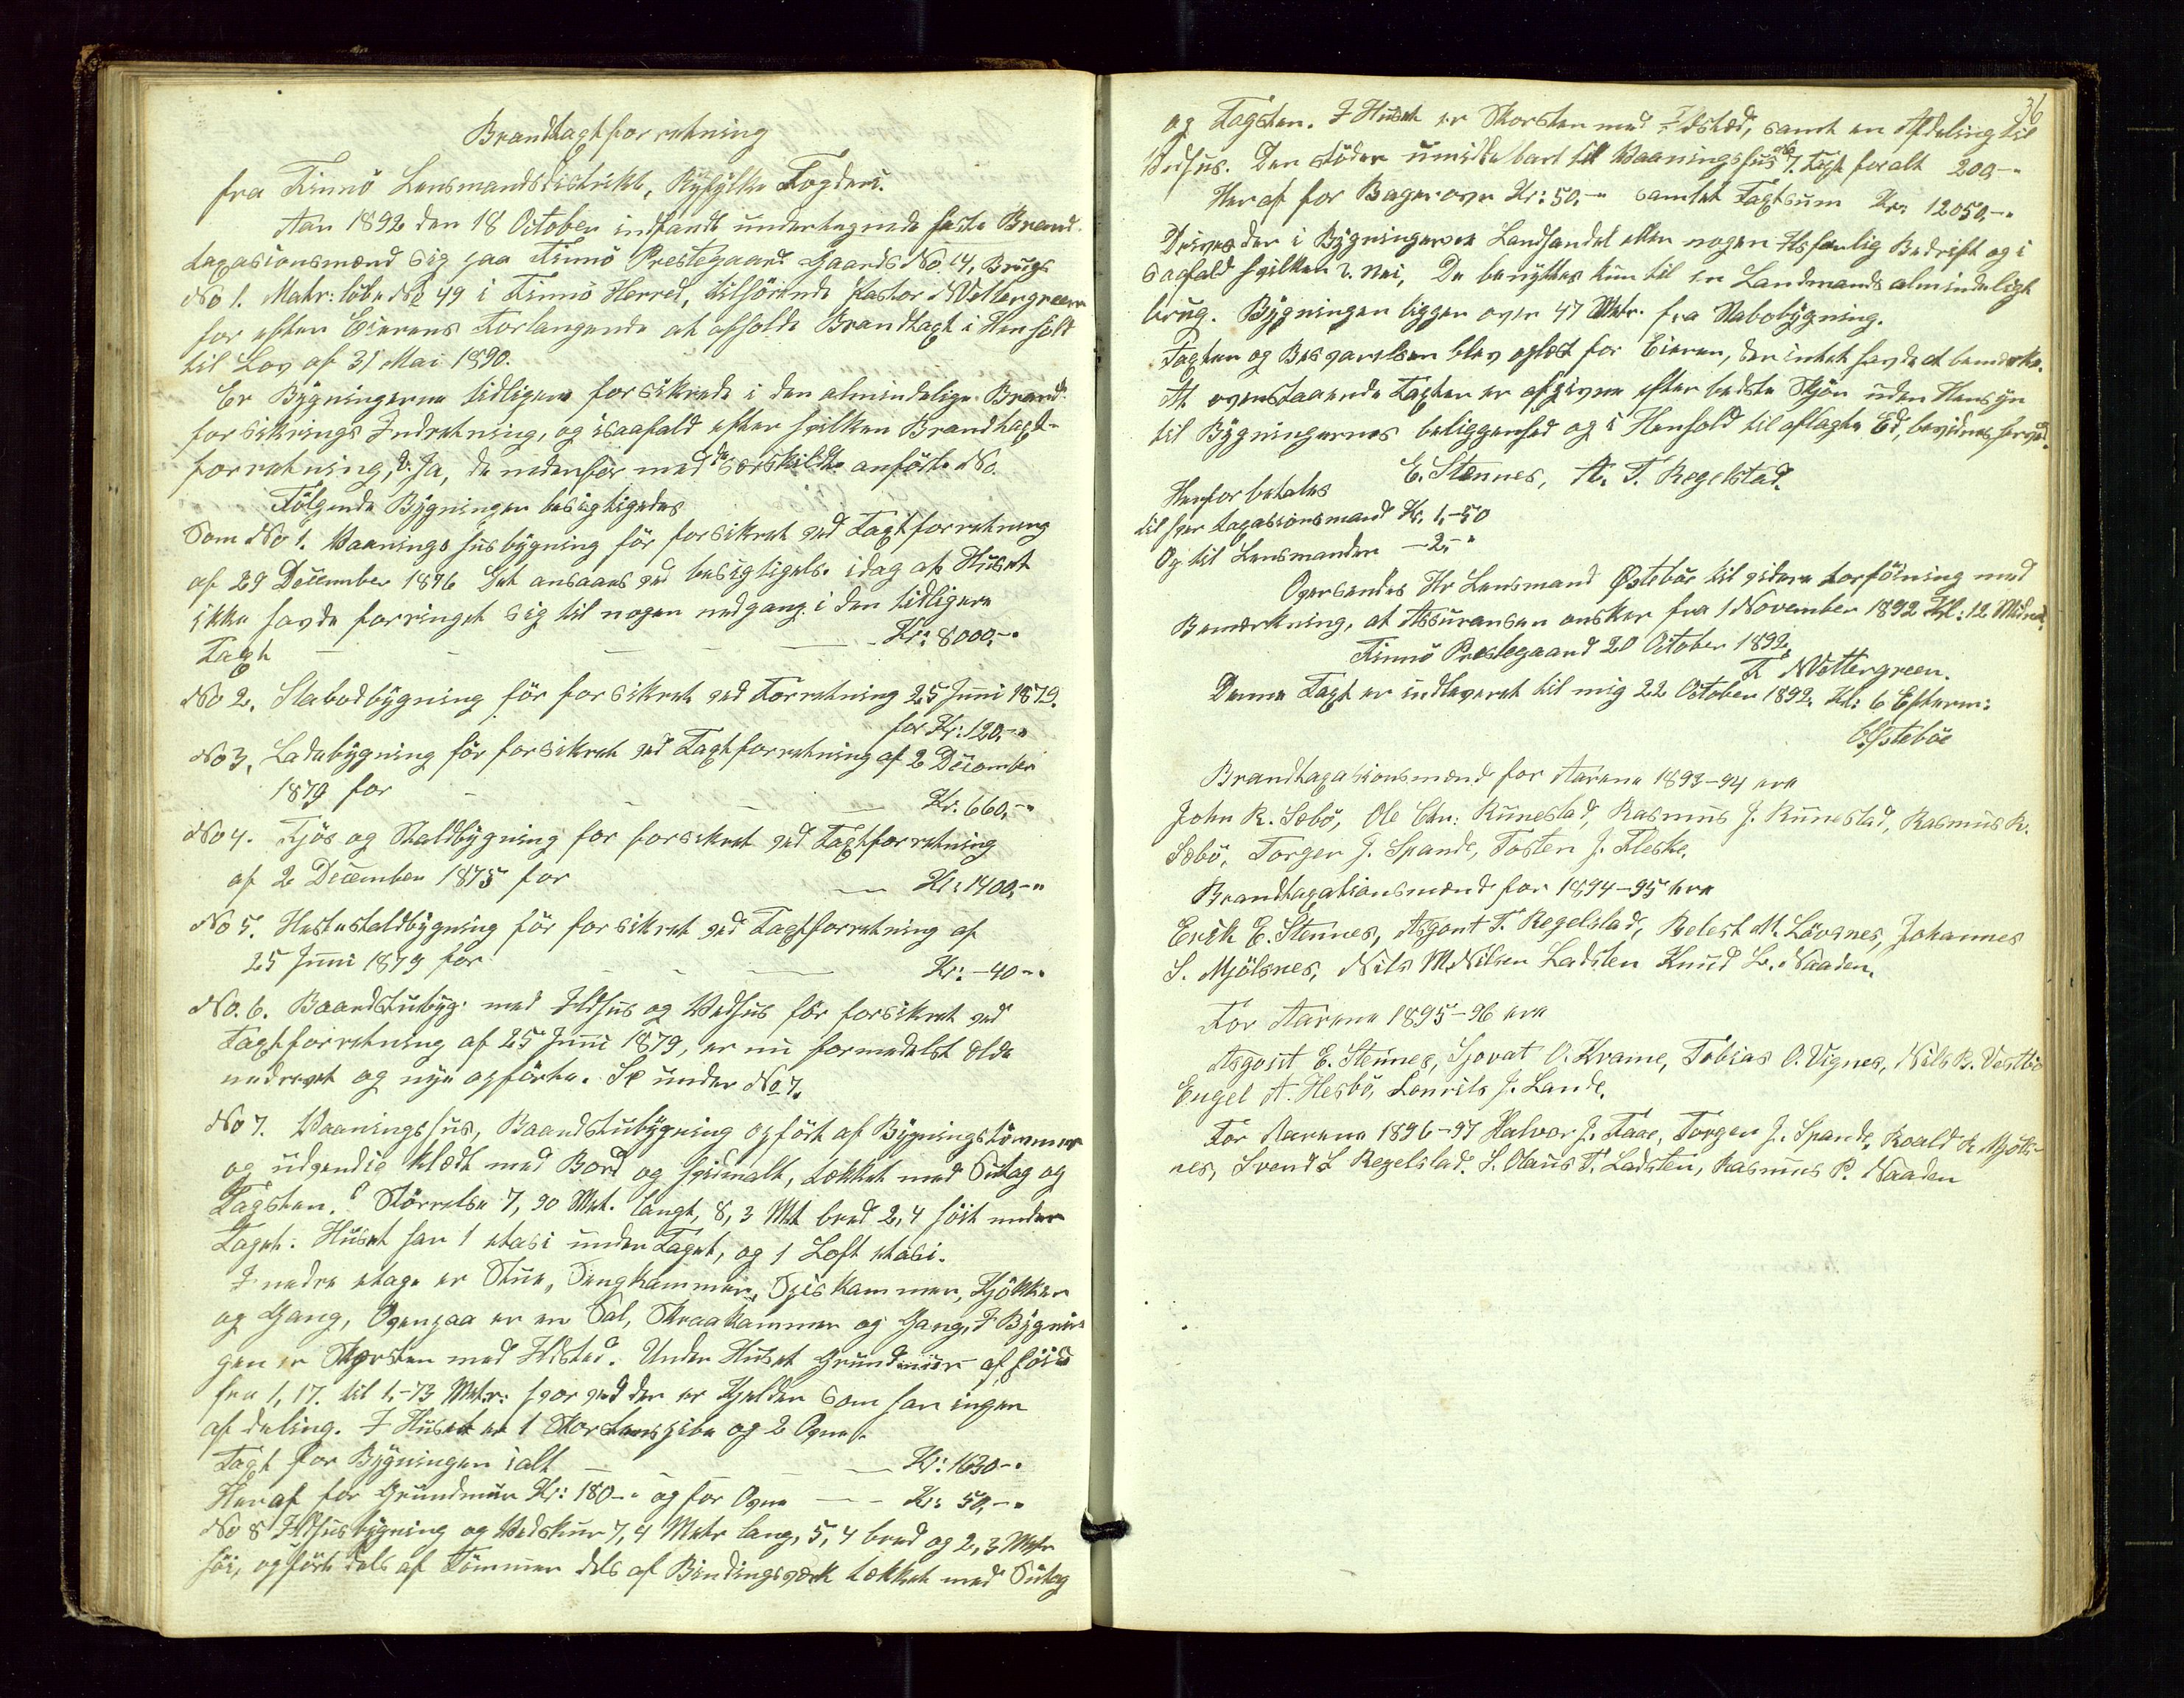 Brandtaxtforretning
fra Finnö Lensmandsdistrikt, Ryfylke Fogderi.
Aar 1892 den 18 October indfandt undertegnede faste Brand-
taxasionsmænd sig paa Finnö Prestegaard Gaards No. 14, Brugs
No 1. Matr: löbe No 49 i Finnö Herred, tilhörende Pastor N Vettergreen
for efter Eierens Forlangende at afholde Brandtaxt i Henhold
til Lov af 31 Mai 1890.
Er Bygningerne tidligere forsikrede i den almindelige Brand-
forsikrings Indretning, og isaafald efter hvilken Brandtaxt-
forretning, Ja, de nedenfor med særskildte anförte No.
Fölgende Bygninger besigtigedes
Som No 1. Vaaningshusbygning för forsikret ved Taxtforretning
af 29 December 1876 Det ansaaes ved besigtigelse idag at Huset
ikke havde forringet sig til nogen nedgang i den tidligere
Taxt — — — — Kr: 8000,-"
No 2. Stabodbygning för forsikret ved Forretning 25 Juni 1879.
for Kr: 120,-"
No 3, Ladebygning för forsikret ved Taxtforretning af 2 December
1879 for — — — — Kr. 660,-"
No 4. Fjös og Staldbygning for forsikret ved Taxtforretning
af 2 December 1875 for — Kr: 1400,-"
No 5. Hestestaldbygning för forsikret ved Taxtforretning af
25 Juni 1879 for — — — Kr: -40-"
No. 6. Baandstubyg: med Ildhus og Vedhus för forsikret ved
Taxtforretning af 25 Juni 1879, er nu formedelst Elde
nedrevet og nye opförte. Se under No 7.
No 7. Vaaningshus, Baandstubygning opfört af Bygningstömmer
og udvendig klædt med Bord og hvidmalt, tækket med Sutag og
Tagsten. Störrelse 7, 90 Met. langt, 8, 3 Met bred 2, 4 höit under
Taget. Huset har 1 etasi under Taget, og 1 Loft etasi.
I nedre etage er Stue, Sengkammer, Spiskammer, Kjökken
og Gang, Ovenpaa er en Sal, Skraakammer og Gang, I Bygnin-
gen er Skorsten med Ildsted. Under Huset Grundmur af höide
fra 1, 17. til 1,-73 Metr: hvorved der er Kjelder som har ingen
afdeling. I Huset er 1 Skorstenspibe og 2 Ovne.
Taxt for Bygningen ialt — — — Kr: 1630-"
Heraf for Grundmur Kr: 180-" og for Ovne — - Kr: 50,-"
No 8 Ildhusbygning og Vedskur 7, 4 Metr lang, 5, 4 bred og 2, 3 Metr
höi, opfört dels af Tömmer dels af Bindingsværk tækket med Sutag
36
og Tagsten. I Huset er Skorsten med Ildsted, samt en Afdeling til
Vedhus. Den stöder umiddelbart til Vaaningshus No 7. Taxt for alt 200-"
Heraf for Bagerovn Kr: 50,-" samlet Taxtsum Kr: 12050,-"
Drives der i Bygningerne Landhandel eller nogen Ildsfarlig Bedrift og i
saafald hvilken? Nei, De benyttes kun til en Landmands almindeligt
brug. Bygningen ligger over 47 Metr. fra Nabobygning.
Taxten og Besvarelsen blev oplæst for Eieren, der intet havde at bemærke.
At ovenstaaende Taxter er afgivne efter bedste Skjön uden Hensyn
til Bygningernes beliggenhed og i Henhold til aflagte Ed, bevidnes herved.
E. Stennes, A. T. Regelstad.
Herfor betales
til hver taxasionsmand Kr. 1,-50
Og til Lensmanden — 2,-"
Oversendes Hr Lensmand Østebøe til videre forföining med
Bemærkning, at Assuransen ønskes fra 1 November 1892 Kl: 12 Midnat.
Finnö Prestegaard 20 October 1892.
N Vettergreen.
Denne Taxt er indleveret til mig 22 October 1892. Kl: 6 Efterm:
Østebøe
Brandtaxasionsmænd for Aarene 1893-94 ere
John R. Sebö, Ole Chr: Runestad, Rasmus J. Runestad, Rasmus R.
Sebö, Torger J. Spande, Tosten J. Fleske.
Brandtaxationsmænd for 1894-95 ere
Erik E. Stennes, Asgout T. Regelstad, Relest M. Lövsnes, Johannes
S. Mjölsnes, Nils M. Nilsen Ladsten Knud L. Naaden.
For Aarene 1895-96 ere
Asgout E. Stennes, Sjovat O. Kvame, Tobias O. Vignes, Nils B. Vestbö
Engel A. Hesbö, Lourits J. Lande.
For Aarene 1896-97 Halvor J. Faae, Torger J. Spande, Roald R Mjöls-
nes, Svend S Regelstad. S. Olaus T. Ladsten, Rasmus P. Naaden